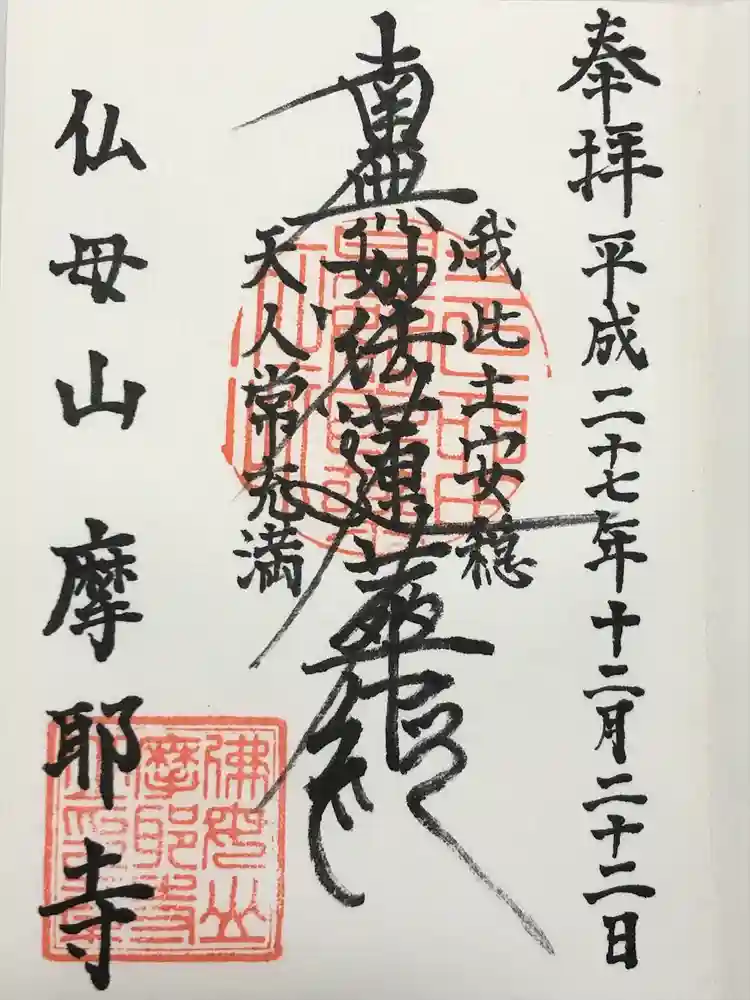 奉拝 平成二十七年十二月二十二日
我此土安穏
南無妙法蓮華経
天人常充満
仏母山 摩耶寺
佛母山
摩耶寺